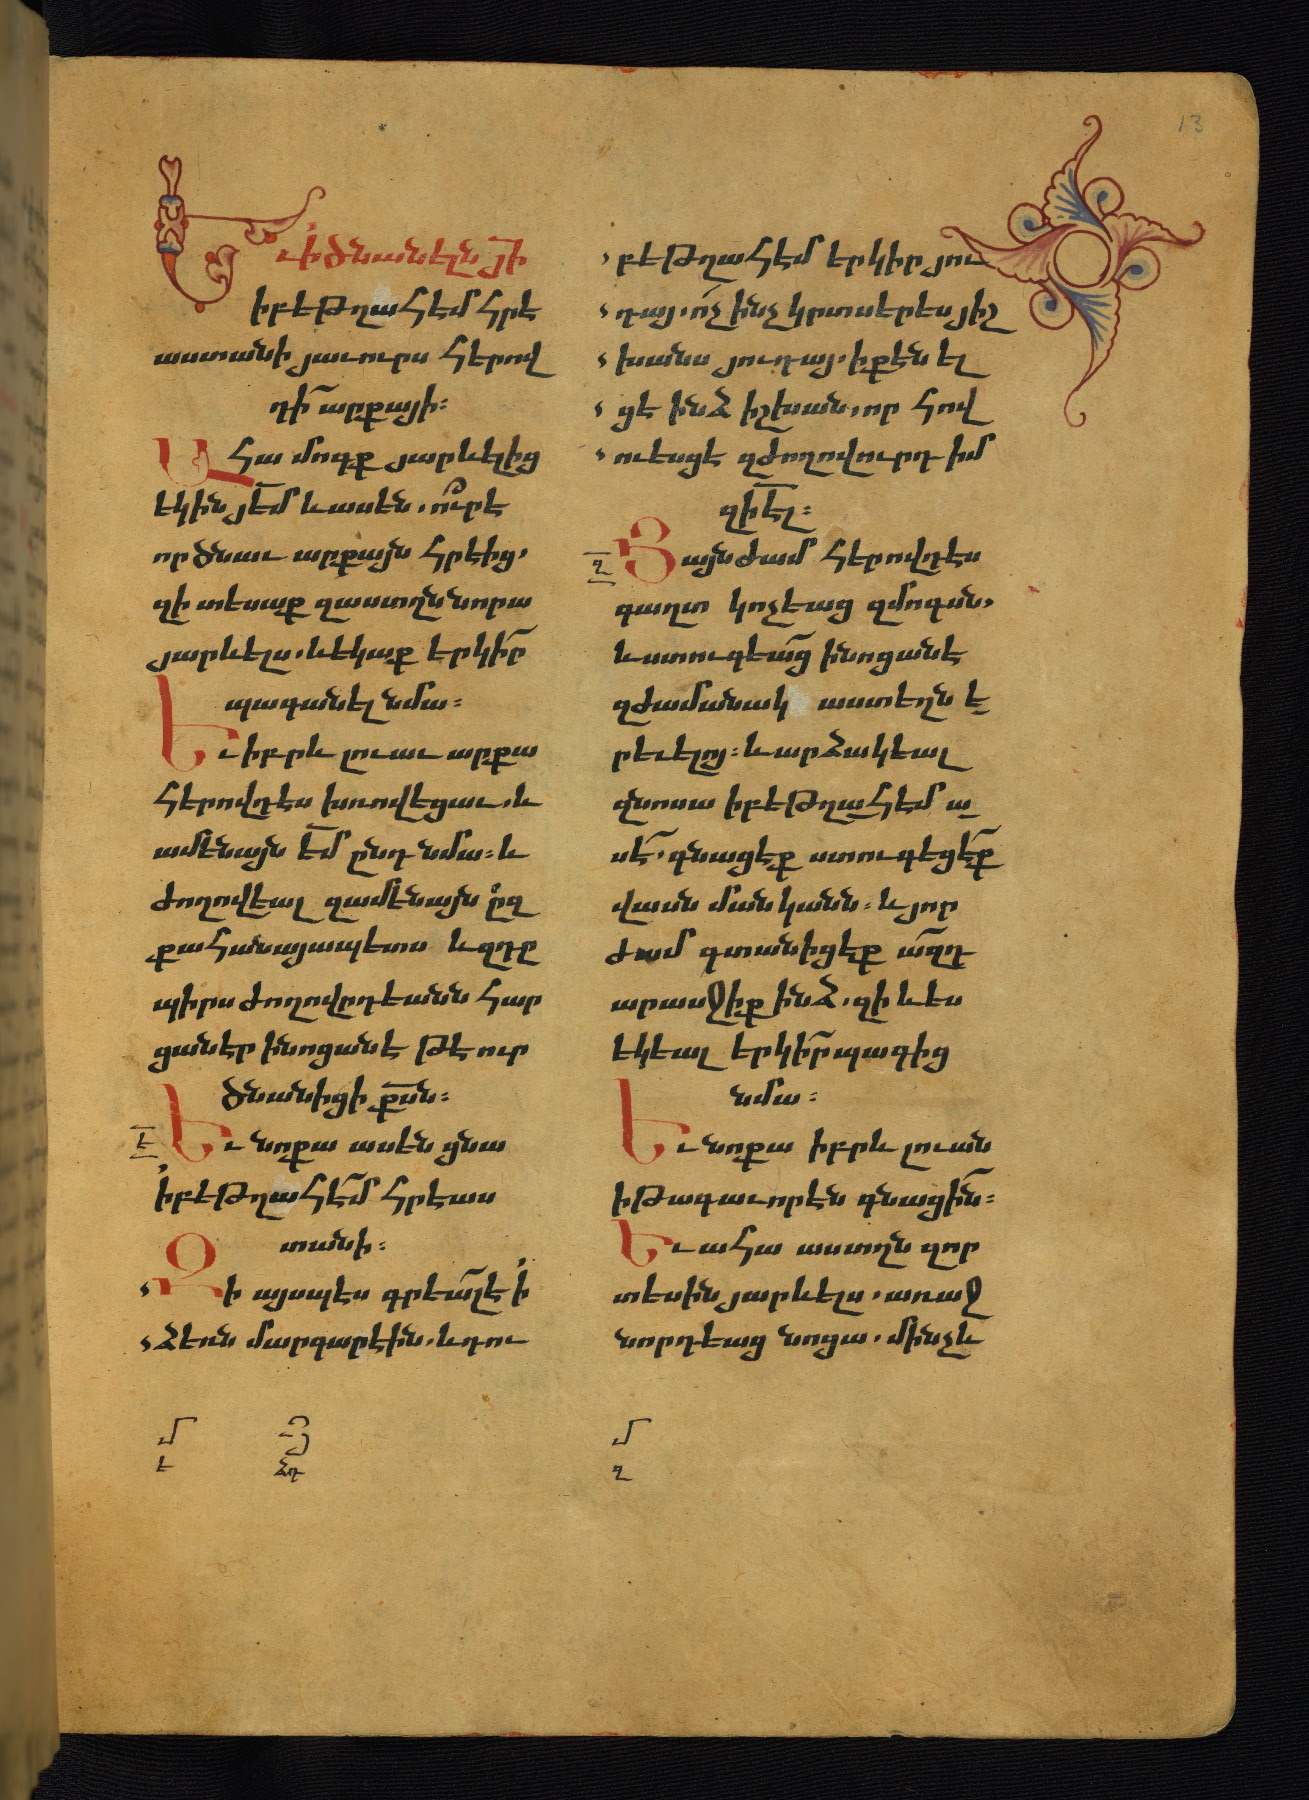 13
Եւ ի ծնանելն յի
ի բեթղահէմ հրէ
աստանի յաւուրս հերով
դի արքայի։
Ահա մոգք յարևելից
եկին յէմ և ասեն. ո՞ւր է
որ ծնաւ արքայն հրէից.
զի տեսաք զաստղն նորա
յարևելս. և եկաք երկիր
պագանել նմա։
Եւ իբրև լուաւ արքա
հերովդէս խռովեցաւ. և
ամենայն էմ ընդ նմա։ և
ժողովեալ զամենայն զ
քահանայապետս և զդը
պիրս ժողովրդեանն հար
ցաներ ի նոցանէ թէ ուր
ծնանիցի քսն։
է
Եւ նոքա ասեն ցնա
ի բեթղահէմ հրէաս
տանի։
Զի այսպէս գրեալ է ի
ձեռն մարգարէին. և դու
մ
ե
յ
ձդ
բեթղահէմ երկիր յու
դայ. ոչ ինչ կրտսեր ես յիշ
խանս յուդայ. ի քէն ել
ցէ ինձ իշխան. որ հով
ուեսցէ զժողովուրդ իմ
զիէլ։
ը
Յայնժամ հերովդէս
գաղտ կոչեաց զմոգսն,
և ստուգեաց ի նոցանէ
զժամանակ աստեղն ե
րեւելոյ։ և արձակեալ
զնոսա ի բեթղահէմ ա
սէ. գնացէք ստուգեցէք
վասն մանկանն։ և յոր
ժամ գտանիցէք ազդ
արասջիք ինձ. զի և ես
եկեալ երկիր պագից
նմա։
Եւ նոքա իբրև լուան
ի թագաւորէն գնացին։
Եւ ահա աստղն զոր
տեսին յարևելս. առաջ
նորդեաց նոցա. մինչև
մ
ը